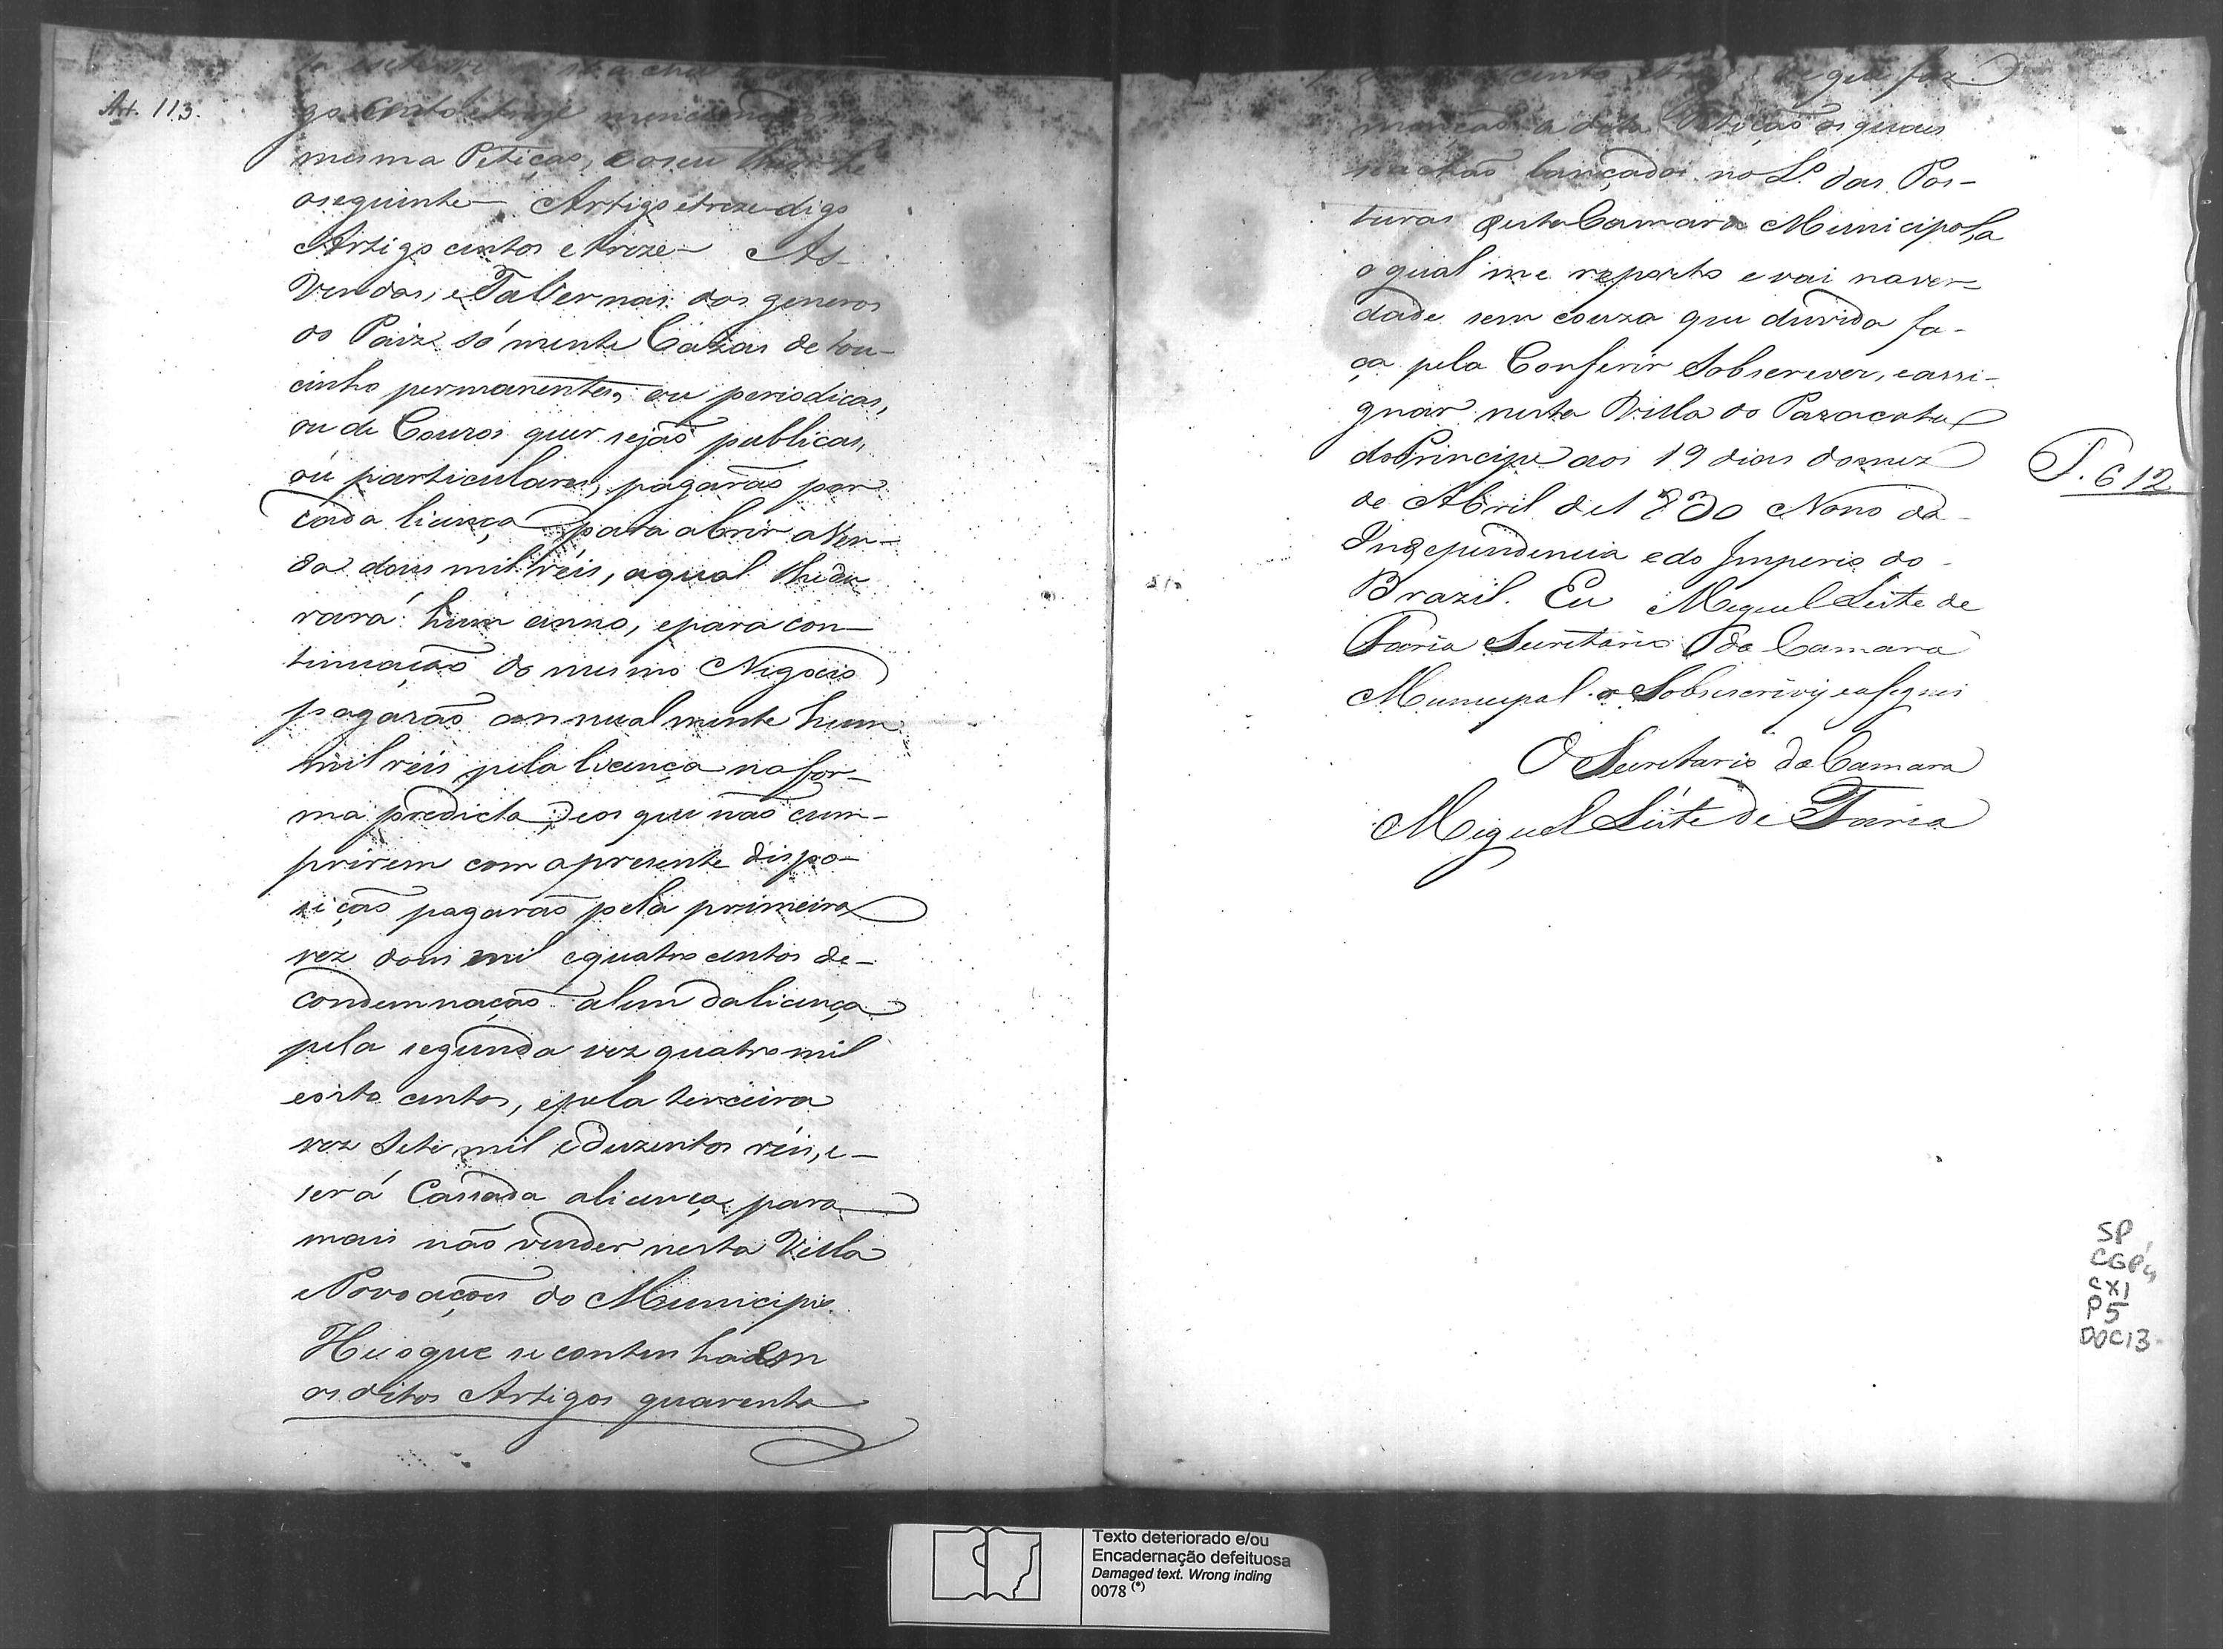 Art. 113.
mesma Petiçaõ, e o seu theor he
o seguinte Artigo etreze digo
Artigo centos e treze As
Vendas, e Tabernas dos generos
do Paiz só mente Cazas de tou-
cinho permanentes, ou periodicas,
ou de Couros quer sejaõ publicas,
ou particulares, pagaraõ por
cada licença para abrir a Ven-
da dous mil réis, aqual lhe du
rará hum anno, epara con-
tinuaçaõ do mesmo Negocio
pagaraõ annualmente hum
mil réis pela licença na for-
ma predicta, e os que naõ cum-
prirem com apresente dispo-
siçaõ pagaraõ pela primeira
vez dous mil equatro centos de-
condemnaçaõ alem da licença
pela segunda vez quatro mil
eoito centos, epela terceira
vez Sete mil e duzentos réis, e-
será Cassada a licença para
mais naõ vender nesta Villa
e Povoaçoẽs do Municipio.
He o que se continha em
os ditos Artigos quarenta
que faz
mençaõ a dita Petiçaõ os quaes
se achaõ lançados no L.º das Pos-
turas desta Camara Municipal, a
o qual me reporto e vai na ver-
dade sem couza que duvida fa-
ça pela Conferir Sobscrever, e assi-
gnar nesta Villa do Paracatu
do Principe aos 19 dias do mez
de Abril de 1830 Nono da
Independencia e do Imperio do
Brazil. Eu Miguel Leite de
Faria Secretario da Camara
Municipal o Sobscrevy e asignei
O Secretario da Camara
Miguel Leite de Faria
P. 612
SP
CGP4
CX1
P5
DOC13
Texto deteriorado e/ou
Encadernação defeituosa
Damaged text. Wrong inding
0078 (*)